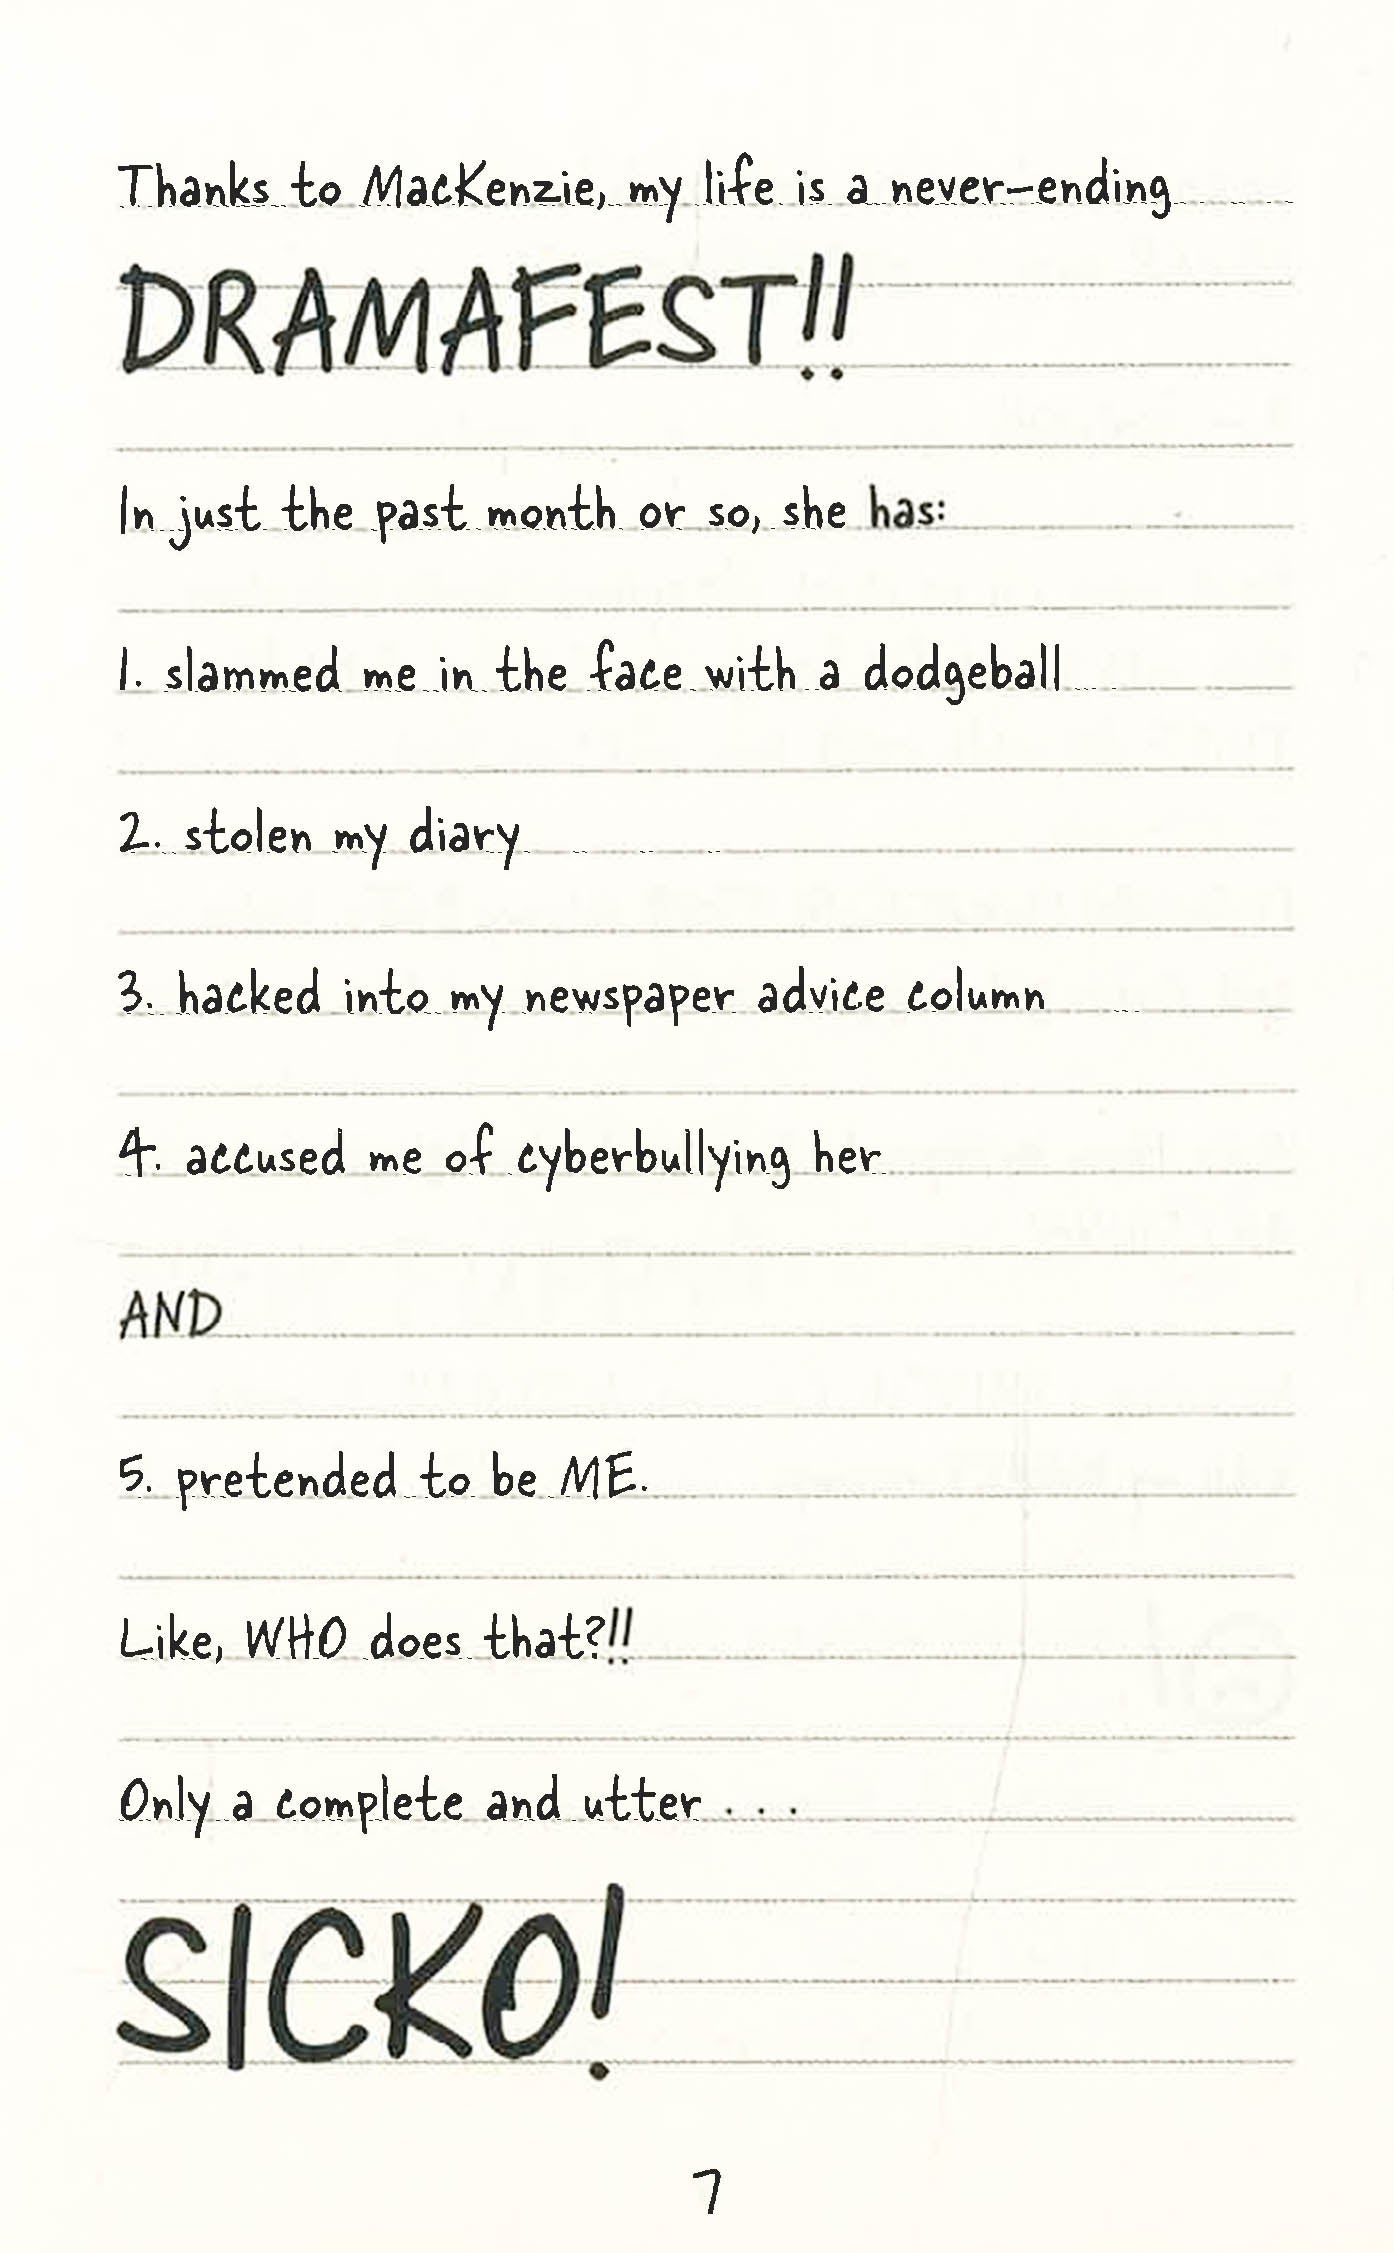 Thanks to MacKenzie, my life is a never-ending
DRAMAFEST!!
In just the past month or so, she has:
1. slammed me in the face with a dodgeball
2. stolen my diary
3. hacked into my newspaper advice column
4. accused me of cyberbullying her
AND
5. pretended to be ME.
Like, WHO does that?!!
Only a complete and utter . . .
SICKO!
7